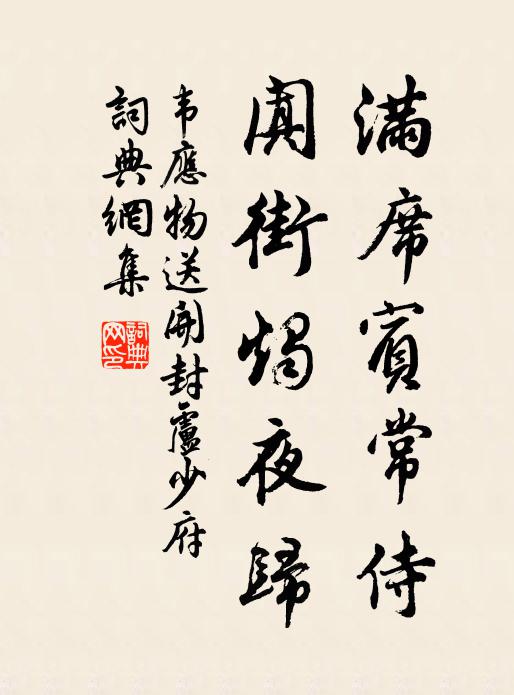 滿席賓常侍
闐街燭夜歸
韦應物送開封盧少府
詞典網集
詞典网印